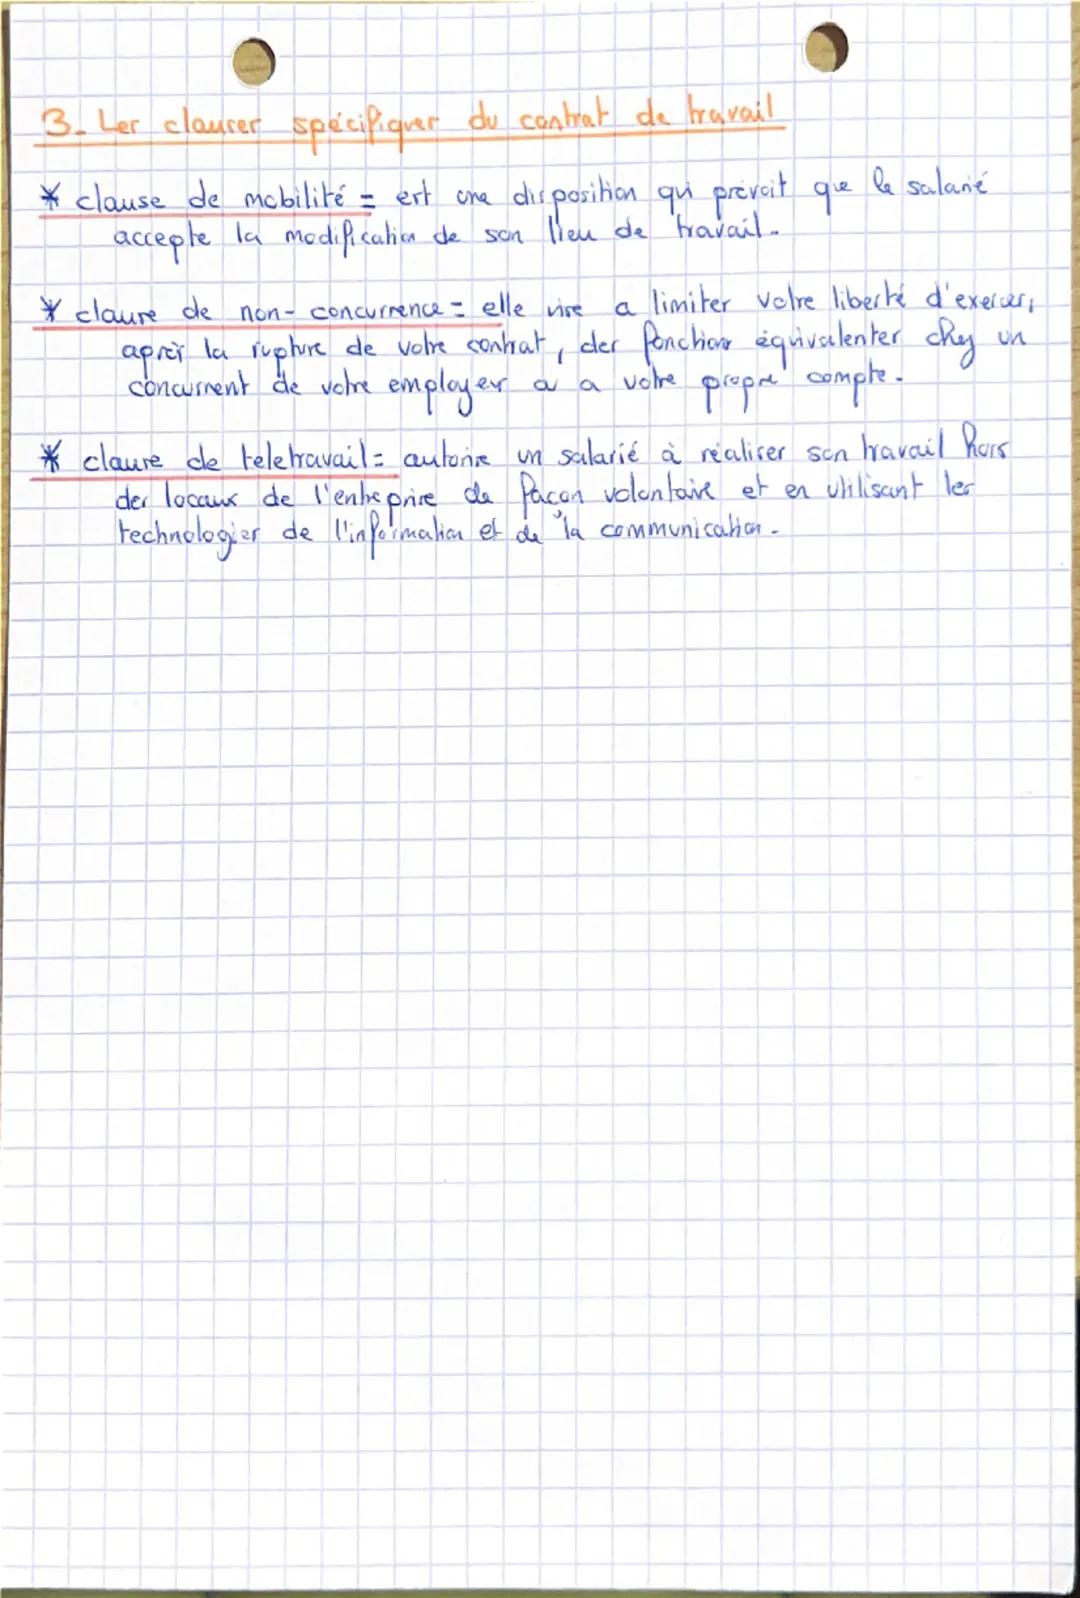 3- Les clauses spécifiques du contrat de travail
* clause de mobilité = est une disposition qui prévoit que le salarié
accepte la modification de son lieu de travail.
* clause de non-concurrence = elle vise a limiter votre liberté d'exercer,
après la rupture de votre contrat, des fonctions équivalentes chez un
concurrent de votre employer o a votre propre compte.
* clause de teletravail = autorise un salarié à réaliser son travail hors
des locaux de l'entreprise de façon volontaire et en utilisant les
technologies de l'information et de la communication.